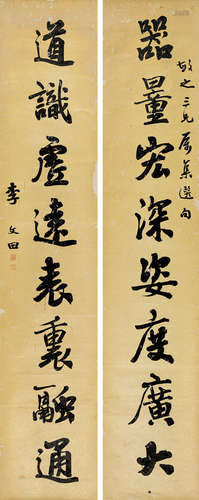 敬之三兄屬集選句
器量宏深姿度廣大
道識虛遠表裏融通
李文田